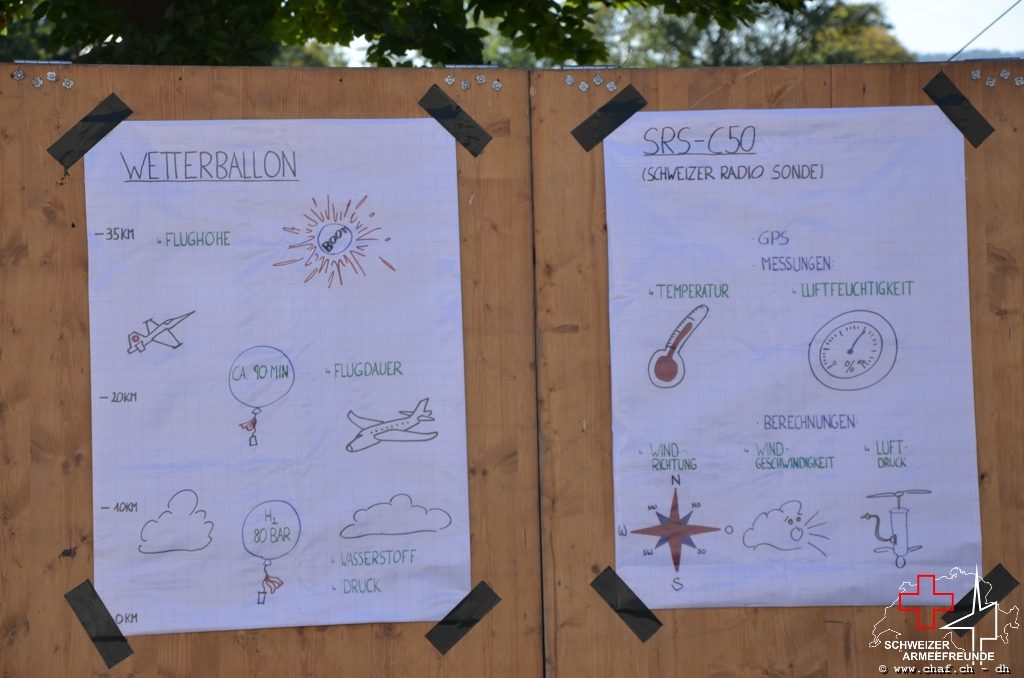 WETTERBALLON
35KM
FLUGHÖHE
BOOM
CA. 90 MIN
FLUGDAUER
20KM
10KM
H2
80 BAR
WASSERSTOFF
DRUCK
0KM
SRS-C50
(SCHWEIZER RADIO SONDE)
GPS
MESSUNGEN:
TEMPERATUR
LUFTFEUCHTIGKEIT
%
BERECHNUNGEN:
WIND-
RICHTUNG
WIND-
GESCHWINDIGKEIT
LUFT-
DRUCK
N
NW
NO
W
O
SW
SO
S
SCHWEIZER
ARMEEFREUNDE
© www.chaf.ch - dh